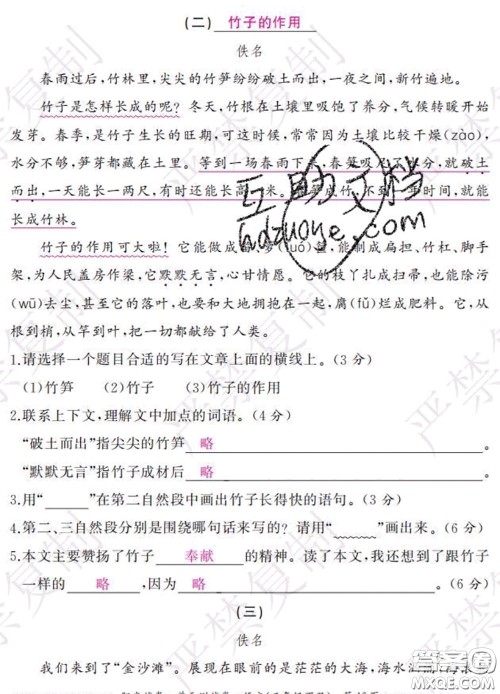 (二) 竹子的作用
佚名
春雨过后，竹林里，尖尖的竹笋纷纷破土而出，一夜之间，新竹遍地。
竹子是怎样长成的呢？冬天，竹根在土壤里吸饱了养分，气候转暖开始
发芽。春季，是竹子生长的旺期，可这时候，常常因为土壤比较干燥(zào)，
水分不够，笋芽都藏在土里。等到一场春雨下 春笋吸 分，就破土
而出，一天能长一两尺，有时还能长高 米。 成竹，不到 时间，就能
长成竹林。
竹子的作用可大啦！它能做成 (luó)筐，能制成扁担、竹杠、脚手
架，为人民盖房作梁，它默默无言，心甘情愿。它的枝丫扎成扫帚，也能除污
(wū)去尘，甚至它的落叶，也要和大地拥抱在一起，腐(fǔ)烂成肥料。它，从
根到梢，从竿到叶，把一切都献给了人类。
1.请选择一个题目合适的写在文章上面的横线上。(3分)
(1)竹笋 (2)竹子 (3)竹子的作用
2.联系上下文，理解文中加点的词语。(4分)
“破土而出”指尖尖的竹笋 略
“默默无言”指竹子成材后 略
3.用“______”在第二自然段中画出竹子长得快的语句。(3分)
4.第二、三自然段分别是围绕哪句话来写的？请用“﹏﹏﹏”画出来。(6分)
5.本文主要赞扬了竹子 奉献 的精神。读了本文，我还想到了跟竹子
一样的 略 ，因为 略 。(6分)
(三)
佚名
我们来到了“金沙滩”。展现在眼前的是茫茫的大海，海水
互助文档
hdzuoye.com
严禁复制